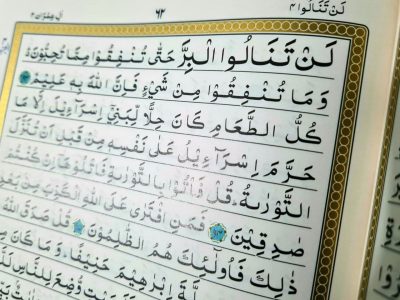 لَنْ تَنَالُوا ٤
٦٢
اٰلِ عِمْرٰن ٣
لَنْ تَنَالُوا الْبِرَّ حَتّٰى تُنْفِقُوْا مِمَّا تُحِبُّوْنَ
وَمَا تُنْفِقُوْا مِنْ شَيْءٍ فَاِنَّ اللّٰهَ بِهٖ عَلِيْمٌ
كُلُّ الطَّعَامِ كَانَ حِلًّا لِّبَنِيْٓ اِسْرَآءِيْلَ اِلَّا مَا
حَرَّمَ اِسْرَآءِيْلُ عَلٰى نَفْسِهٖ مِنْ قَبْلِ اَنْ تُنَزَّلَ
التَّوْرٰىةُ قُلْ فَاْتُوْا بِالتَّوْرٰىةِ فَاتْلُوْهَآ اِنْ كُنْتُمْ
صٰدِقِيْنَ فَمَنِ افْتَرٰى عَلَى اللّٰهِ الْكَذِبَ مِنْ بَعْدِ
ذٰلِكَ فَاُولٰٓئِكَ هُمُ الظّٰلِمُوْنَ قُلْ صَدَقَ اللّٰهُ
مِلَّةَ اِبْرٰهِيْمَ حَنِيْفًا وَمَا كَانَ مِنَ
بَيْتٍ وُّضِعَ لِلنَّاسِ